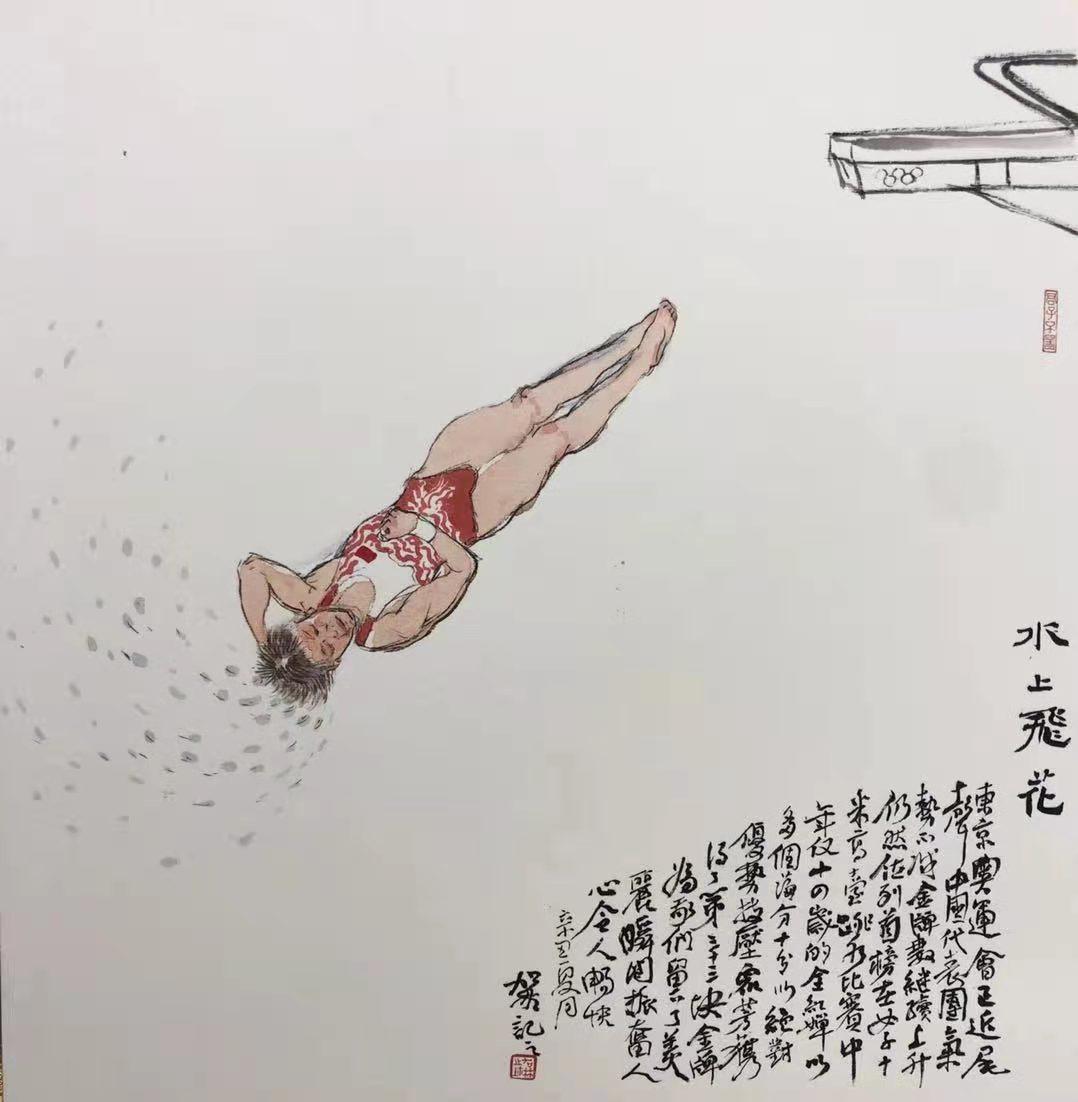 水上飛花
東京奧運會正近尾
聲中國代表團氣
勢不减金牌數继續上升
仍然位列首榜在女子十
米高臺跳水比賽中
年仅十四歲的全红嬋以
多個滿分十分以絕對
優勢技壓羣芳獲
得了第三十三块金牌
為我們留下了美
麗瞬間振奮人
心令人暢快
辛丑夏月
記之
君子不器